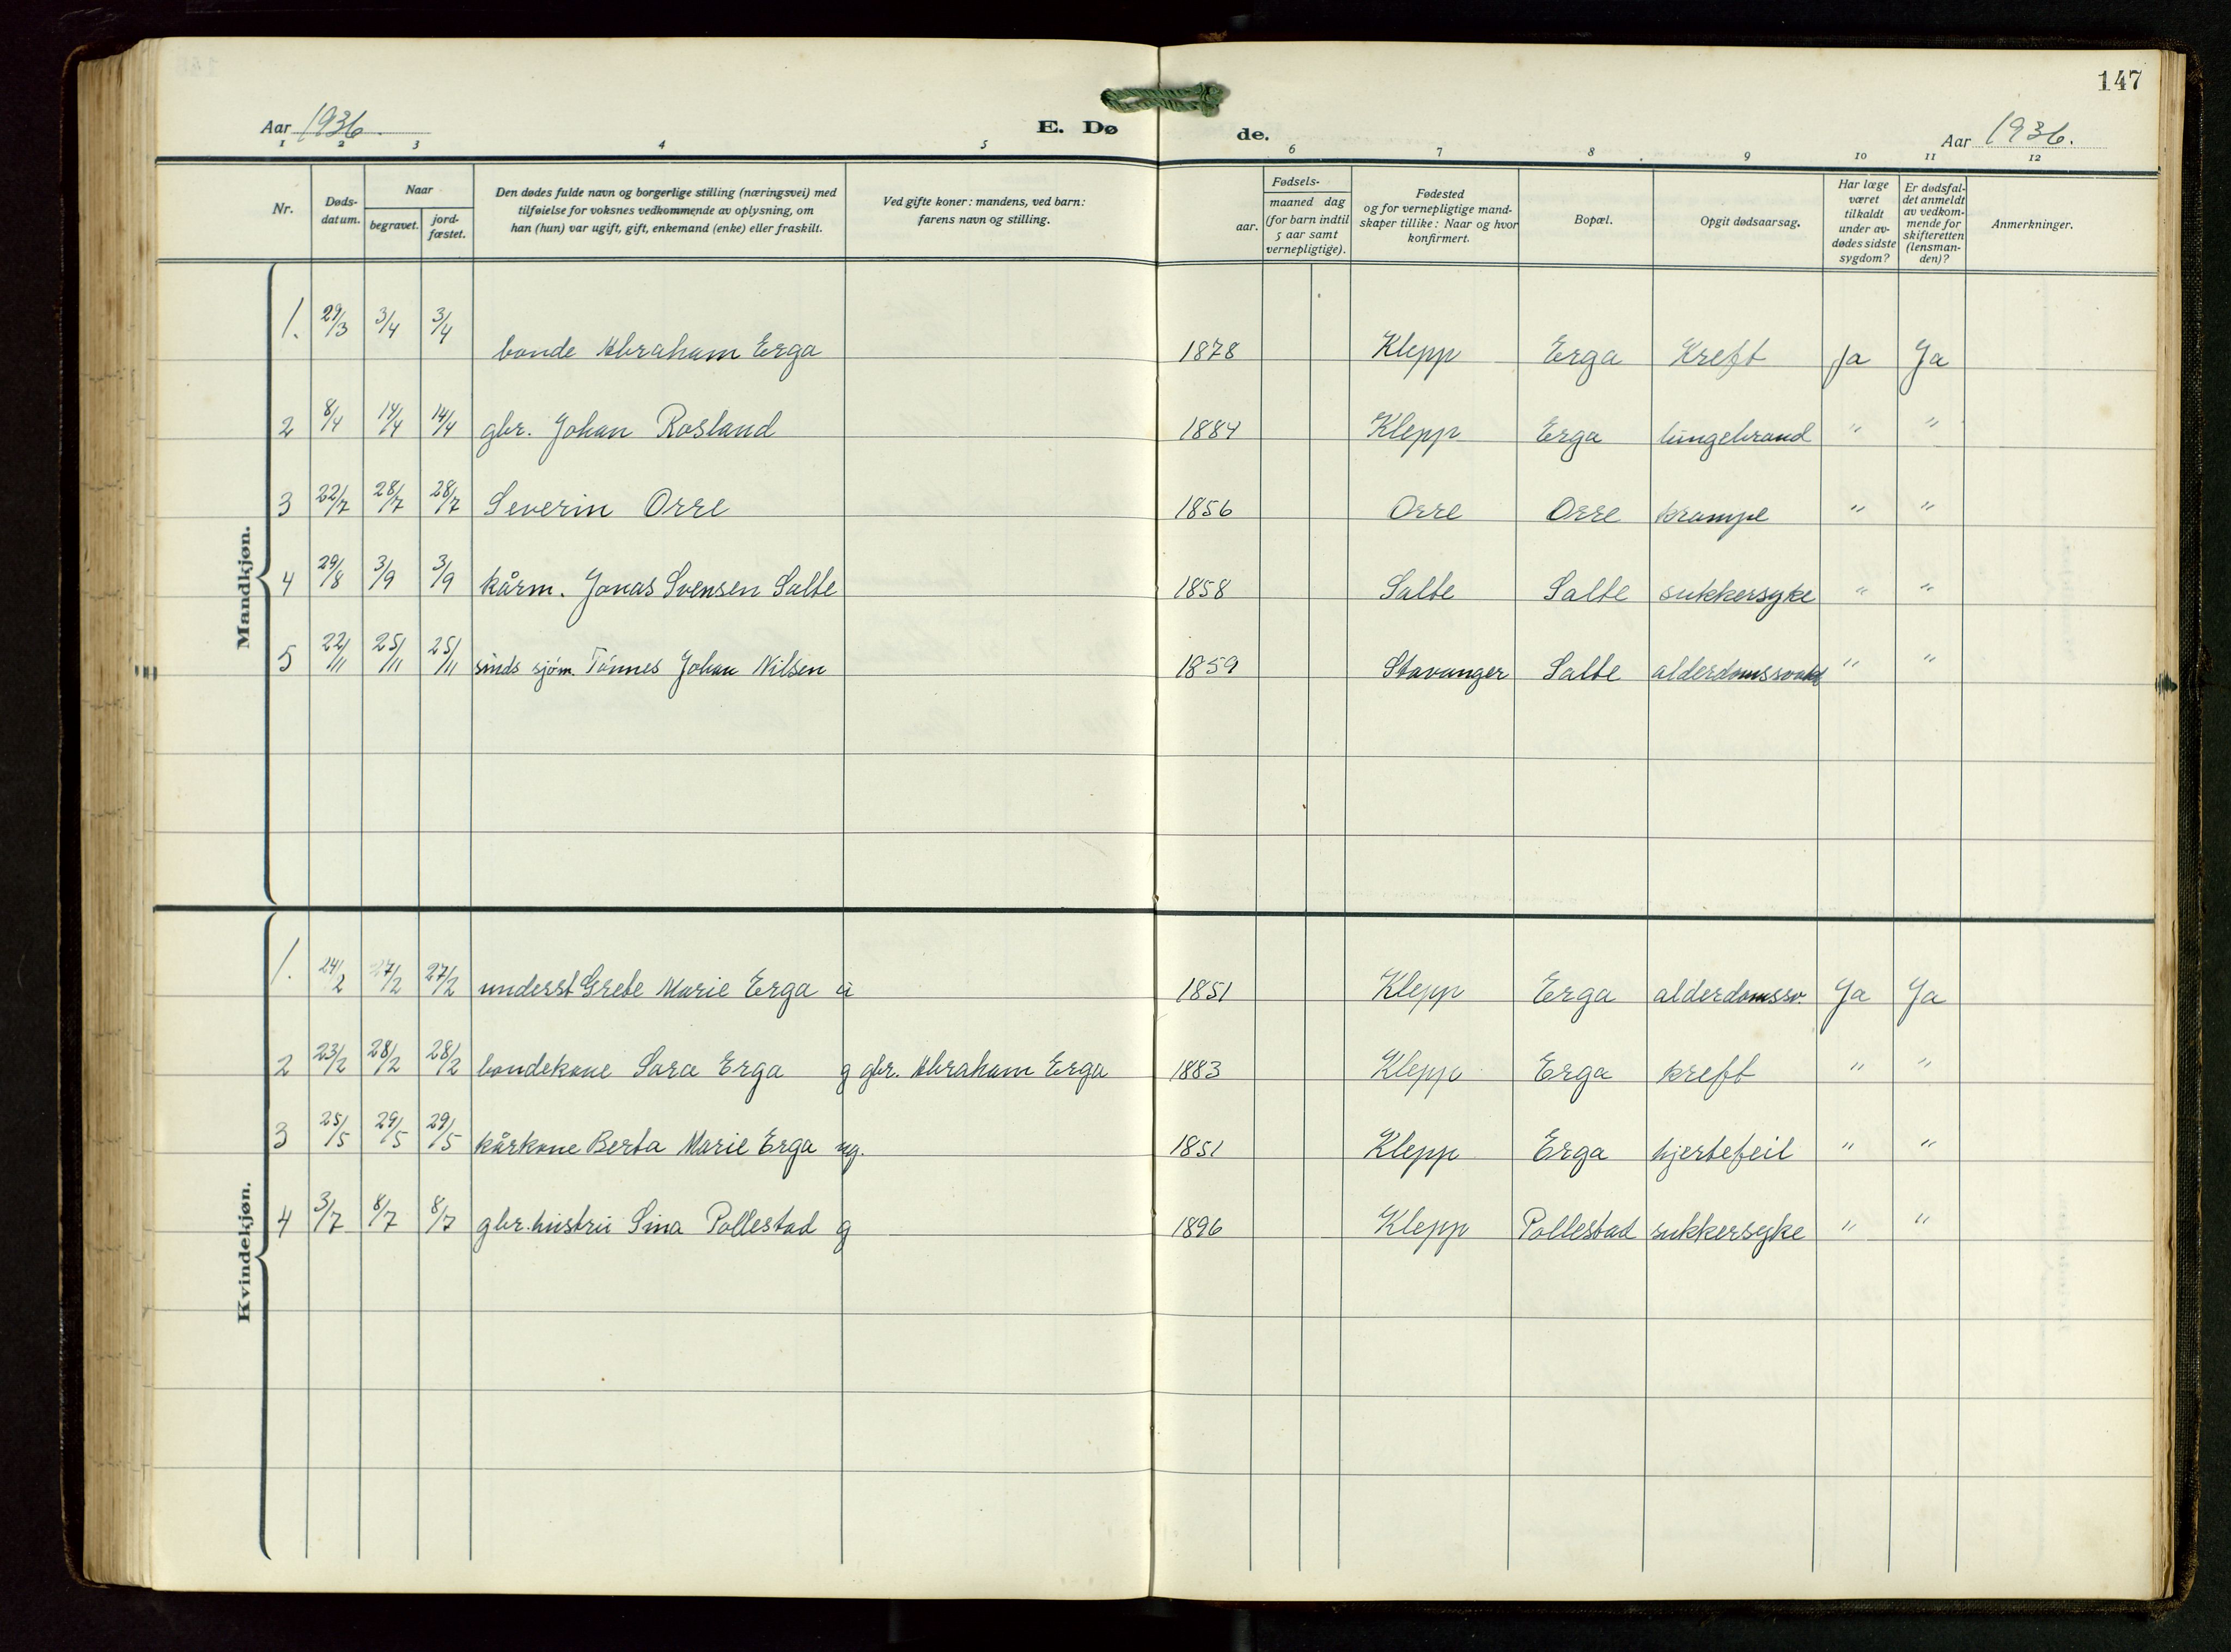 147
Aar 1936. E. Dø de. Aar 1936.
1 2 3 4 5 6 7 8 9 10 11 12
Nr. Døds-datum. Naar begravet. jord-fæstet. Den dødes fulde navn og borgerlige stilling (næringsvei) med tilføielse for voksnes vedkommende av oplysning, om han (hun) var ugift, gift, enkemand (enke) eller fraskilt. Ved gifte koner: mandens, ved barn: farens navn og stilling. aar. Fødsels- maaned dag (for barn indtil 5 aar samt vernepligtige). Fødested og for vernepligtige mand-skaper tillike: Naar og hvor konfirmert. Bopæl. Opgit dødsaarsag. Har læge været tilkaldt under av-dødes sidste sygdom? Er dødsfal-det anmeldt av vedkom-mende for skifteretten (lensman-den)? Anmerkninger.
Mandkjøn.
1. 29/3 3/4 3/4 bonde Abraham Erga 1878 Klepp Erga Kreft Ja Ja
2 8/4 14/4 14/4 gbr. Johan Rosland 1884 Klepp Erga lungebrand " "
3 22/7 28/7 28/7 Severin Orre 1856 Orre Orre krampe " "
4 29/8 3/9 3/9 kårm. Jonas Svensen Salte 1858 Salte Salte sukkersyke " "
5 22/11 25/11 25/11 sinds sjøm. Tønnes Johan Nilsen 1859 Stavanger Salte alderdomssvakh " "
Kvindekjøn.
1. 24/2 27/2 27/2 underst Grete Marie Erga 1851 Klepp Erga alderdomssv. Ja Ja
2 23/2 28/2 28/2 bondekone Sara Erga g gbr. Abraham Erga 1883 Klepp Erga kreft " "
3 25/5 29/5 29/5 kårkone Berta Marie Erga ug. 1851 Klepp Erga hjertefeil " "
4 3/7 8/7 8/7 gbr. hustru Sina Pollestad g 1896 Klepp Pollestad sukkersyke " "